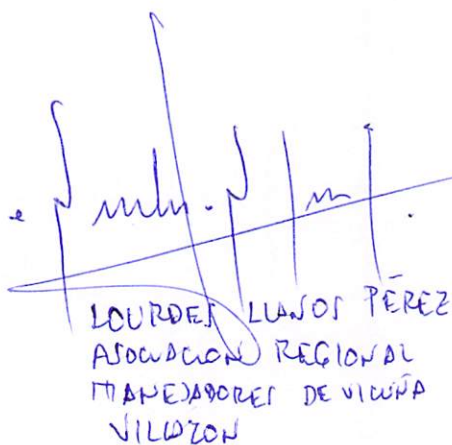 LOURDES LLANOS PÉREZ
ASOCIACION REGIONAL
MANEJADORES DE VICUÑA
VILLAZON